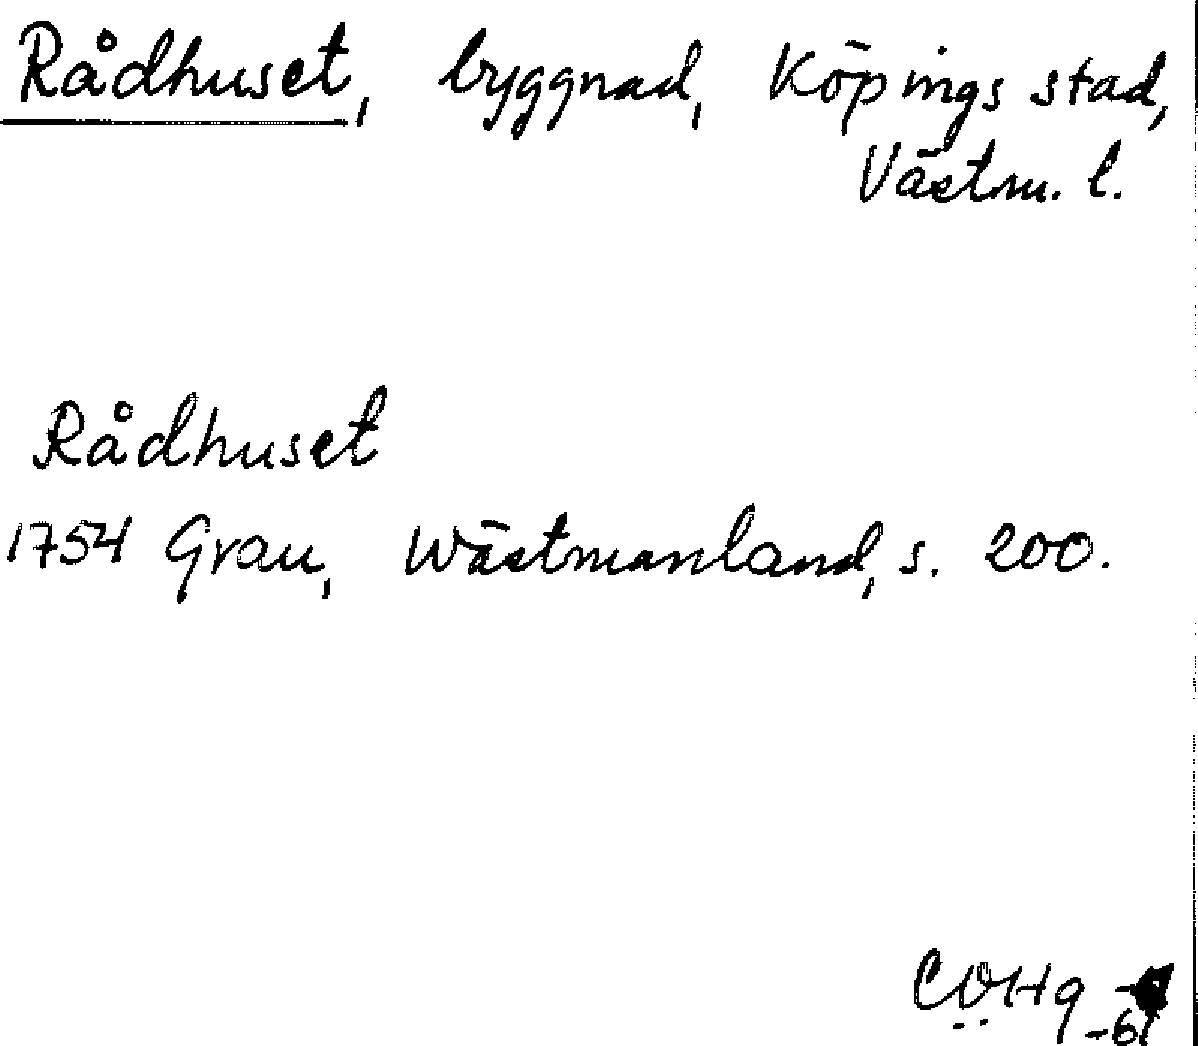 Rådhuset, byggnad, Köpings stad,
Västm. l.
Rådhuset
1754 Grau, Wästmanland, s. 200.
-61